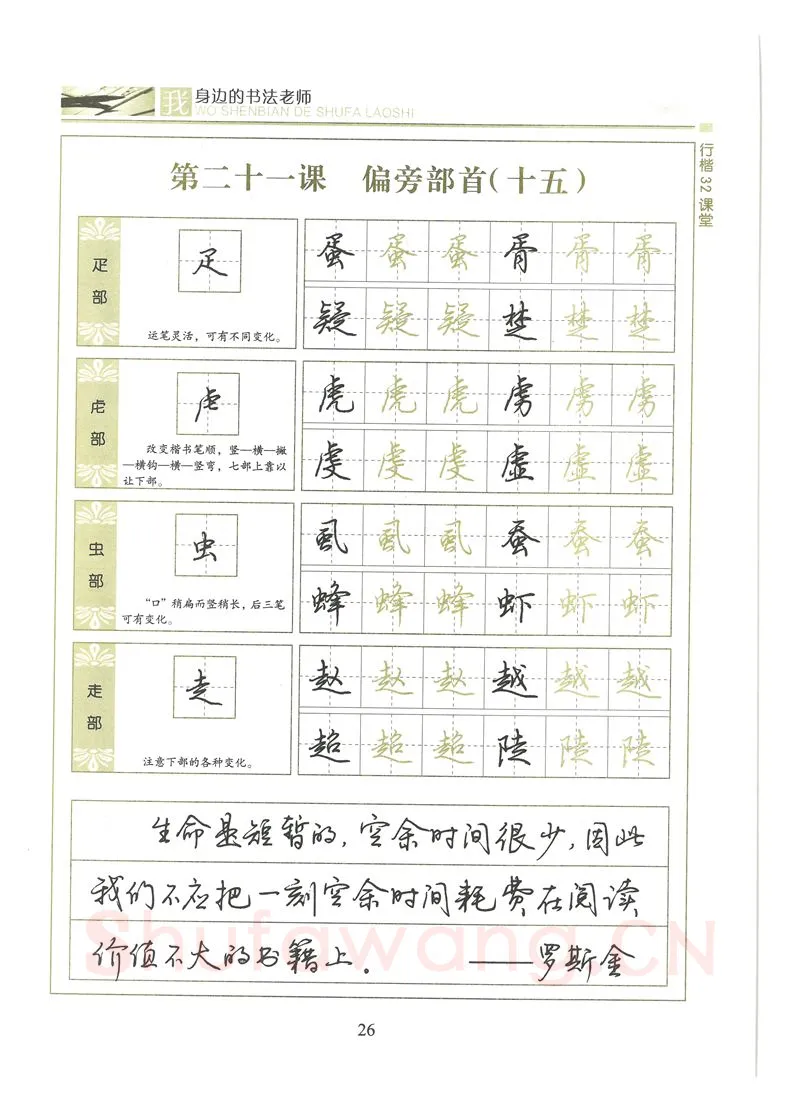 我 身边的书法老师
WO SHENBIAN DE SHUFA LAOSHI
行楷32课堂
第二十一课 偏旁部首(十五)
疋部
疋
运笔灵活，可有不同变化。
蛋 蛋 蛋 胥 胥 胥
疑 疑 疑 楚 楚 楚
虍部
虍
改变楷书笔顺，竖—横—撇
—横钩—横—竖弯，七部上靠以
让下部。
虎 虎 虎 虏 虏 虏
虔 虔 虔 虚 虚 虚
虫部
虫
“口”稍扁而竖稍长，后三笔
可有变化。
虱 虱 虱 蚕 蚕 蚕
蜂 蜂 蜂 虾 虾 虾
走部
走
注意下部的各种变化。
赵 赵 赵 越 越 越
超 超 超 陡 陡 陡
生命是短暂的，空余时间很少，因此
我们不应把一刻空余时间耗费在阅读
价值不大的书籍上。 ——罗斯金
Shufawang.CN
26